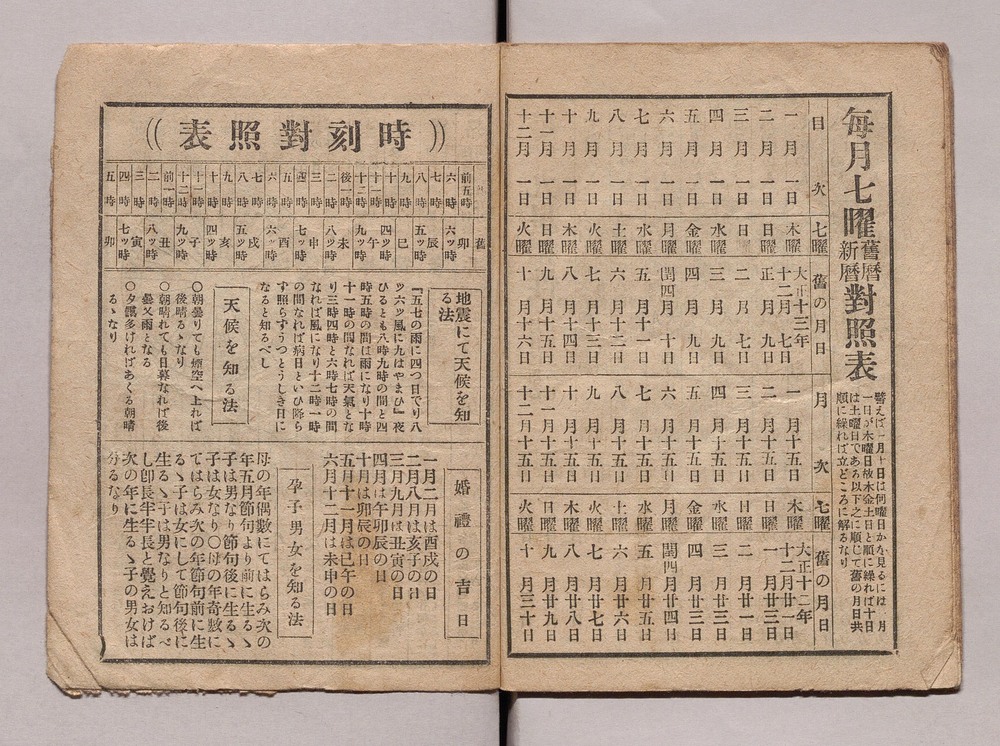 毎月七曜舊暦新暦對照表
譬えば一月十日は何曜日かを見るには一月
一日が木曜日故木金土日と順に繰れば十日
は土曜日である以下之に順じて舊の月日共
順に繰れば立どころに解るなり
日次 七曜 舊の月日 月次 七曜 舊の月日
一月一日 木曜 大正十三年十二月七日 一月十五日 木曜 大正十三年十二月廿一日
二月一日 日曜 正月九日 二月十五日 日曜 一月廿三日
三月一日 日曜 二月七日 三月十五日 日曜 二月廿一日
四月一日 水曜 三月九日 四月十五日 水曜 三月廿三日
五月一日 金曜 四月九日 五月十五日 金曜 四月廿三日
六月一日 月曜 閏四月十日 六月十五日 月曜 閏四月廿四日
七月一日 水曜 五月十一日 七月十五日 水曜 五月廿五日
八月一日 土曜 六月十二日 八月十五日 土曜 六月廿六日
九月一日 火曜 七月十三日 九月十五日 火曜 七月廿七日
十月一日 木曜 八月十四日 十月十五日 木曜 八月廿八日
十一月一日 日曜 九月十五日 十一月十五日 日曜 九月廿九日
十二月一日 火曜 十月十六日 十二月十五日 火曜 十月三十日
時刻對照表
前五時 六時 七時 八時 九時 十時 十一時 十二時 後一時 二時 三時 四時 五時 六時 七時 八時 九時 十時 十一時 十二時 前一時 二時 三時 四時 五時
舊 卯 六ッ時 辰 五ッ時 巳 四ッ時 午 九ッ時 未 八ッ時 申 七ッ時 酉 六ッ時 戌 五ッ時 亥 四ッ時 子 九ッ時 丑 八ッ時 寅 七ッ時 卯
地震にて天候を知る法
『五七の雨に四つ日でり八
ツ六ツ風に九はやまひ』夜
ひるとも八時九時の間と四
時五時の間は雨になり十時
十一時の間なれば天氣とな
り三時四時と六時七時の間
なれば風になり十二時一時
の間なれば病日といひ降ら
ず照らずうつとうしき日に
なると知るべし
天候を知る法
○朝曇りても煙空へ上れば
後晴るゝなり
○朝晴れても日暮なれば後
曇又雨となる
○夕鐵多ければあくる朝晴
るゝなり
婚禮の吉日
一月二月は酉戌の日
二月八月は亥子の日
三月九月は丑寅の日
四月は午卯辰の日
十月は卯辰の日
五月十一月は巳午の日
六月十二月は未申の日
孕子男女を知る法
母の年偶數にてはらみ次の
年五月節句より前に生るゝ
子は男なり節句後に生るゝ
子は女なり○母の年奇數に
てはらみ次の年節句前に生
るゝ子は女にして節句後に
生るゝ子は男なりと知るべ
し卽長半半長と覺えおけば
次の年に生るゝ子の男女は
分るなり